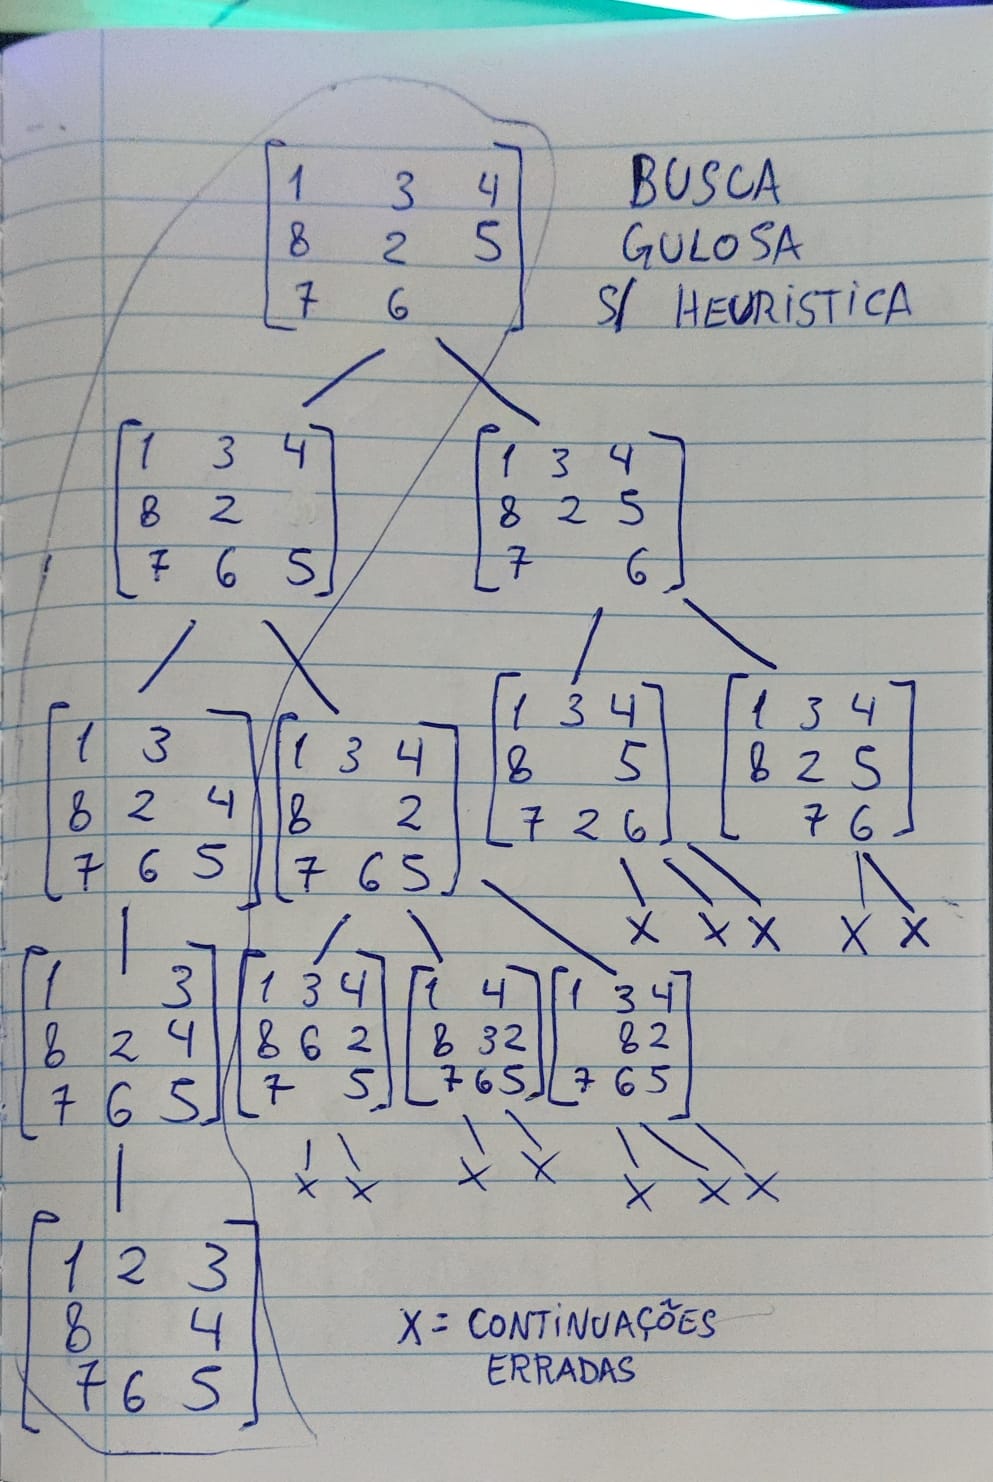 1 3 4
8 2 5
7 6
BUSCA
GULOSA
S/ HEURÍSTICA
1 3 4
8 2
7 6 5
1 3 4
8 2 5
7 6
1 3
8 2 4
7 6 5
1 3 4
8 2
7 6 5
1 3 4
8 5
7 2 6
1 3 4
8 2 5
7 6
X X X X X
1 3
8 2 4
7 6 5
1 3 4
8 6 2
7 5
1 4
8 3 2
7 6 5
1 3 4
8 2
7 6 5
X X X X X X X
1 2 3
8 4
7 6 5
X = CONTINUAÇÕES
ERRADAS